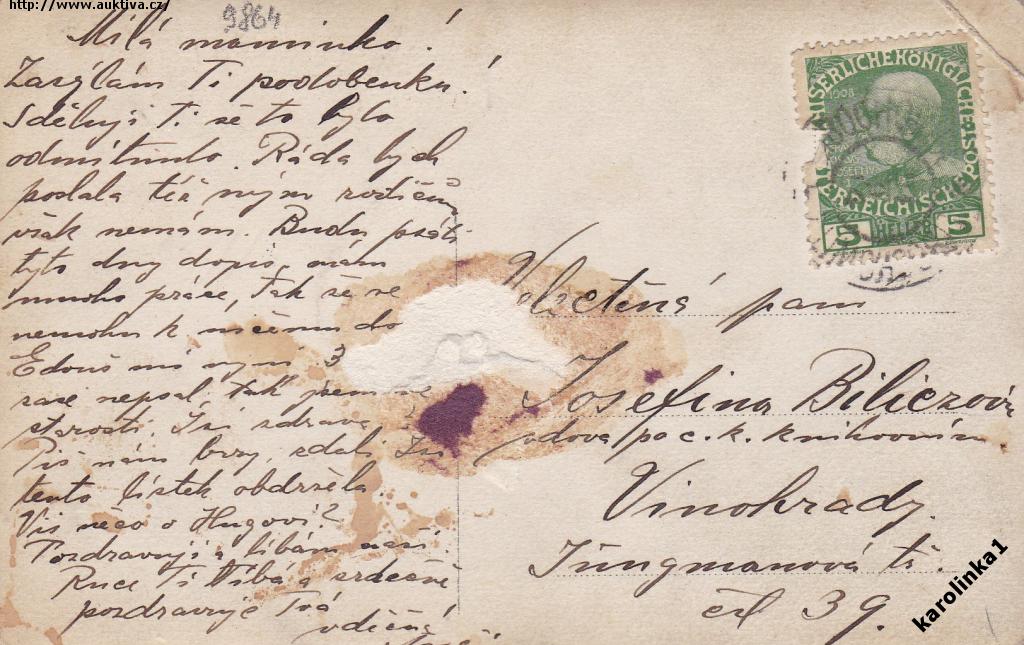 http://www.auktiva.cz/
9864
Milá maminko!
Zasýlám Ti podobenku!
Sděluji Ti že to bylo
odmítnuto. Ráda bych
poslala též mým rodičům
však nemám. Budu psáti
tyto dny dopis, mám
mnoho práce, tak že se
nemohu k ničemu do
Edouš mi nyní 3
zase nepsal, tak jsem ve
starosti. Jsi zdráva
Piš nám brzy, zdali jsi
tento lístek obdržela.
Víš něco o Hugovi?
Pozdravuji a líbám
Ruce Ti líbá a srdečně
pozdravuje Tvá
vděčná
KAISERLICHE KÖNIGLICHE
ÖSTERREICHISCHE POST
1908
5 HELLER 5
Velectěná paní
Josefina Biliczová
vdova po c. k. knihovním
Vinohrady.
Jungmanová tř.
čís 39.
karolinka1